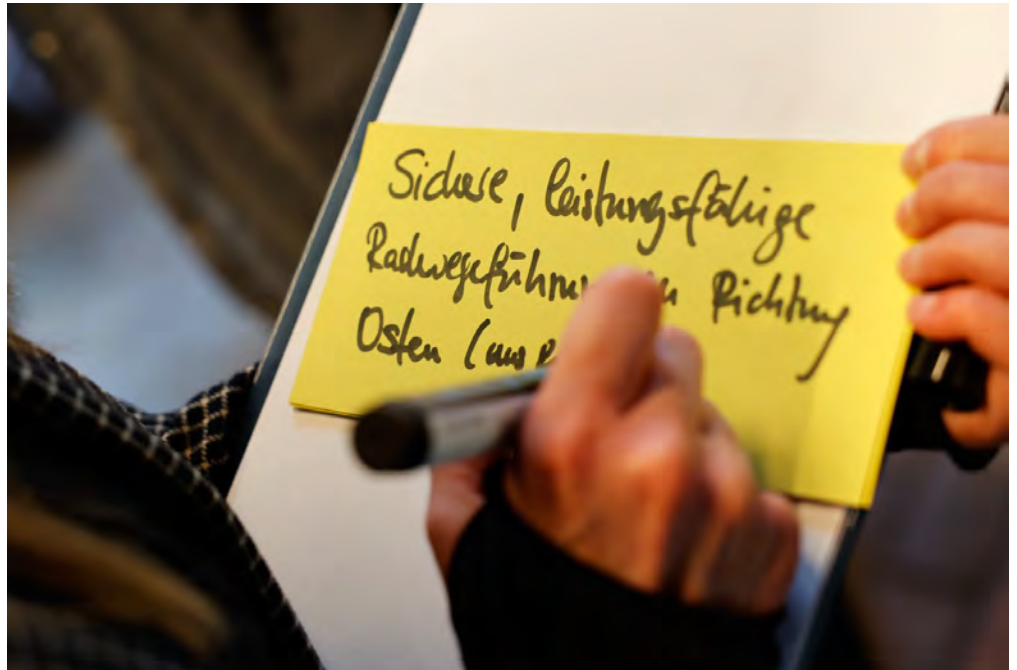 Sichere, leistungsfähige
Radwegeführung in Richtung
Osten (